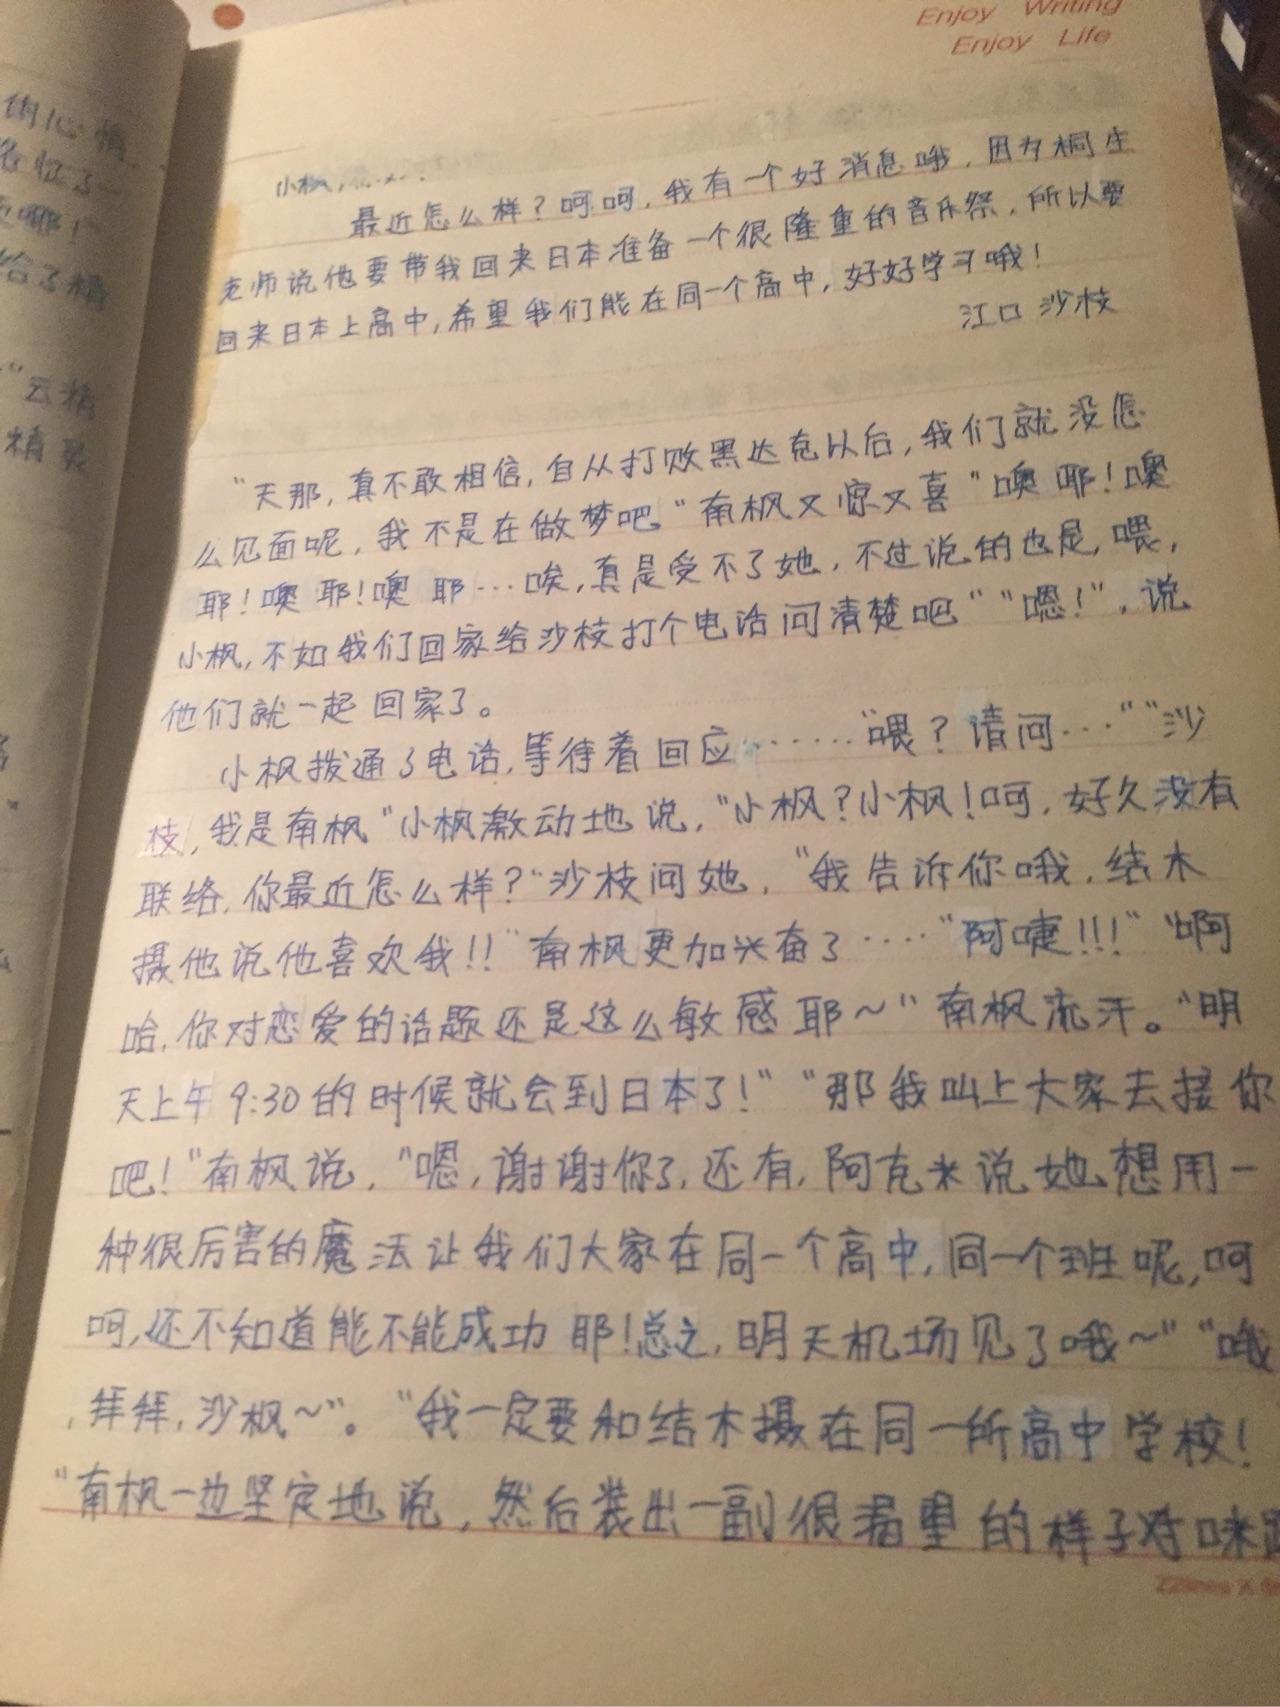 Enjoy Writing
Enjoy Life
小枫,
最近怎么样?呵呵,我有一个好消息哦,因为桐生
老师说他要带我回来日本准备一个很隆重的音乐祭,所以要
回来日本上高中,希望我们能在同一个高中,好好学习哦!
江口 沙枝
"天那,真不敢相信,自从打败黑达克以后,我们就没怎
么见面呢,我不是在做梦吧"南枫又惊又喜"噢耶!噢
耶!噢耶!噢耶…唉,真是受不了她,不过说的也是,喂,
小枫,不如我们回家给沙枝打个电话问清楚吧""嗯!",说
他们就一起回家了。
小枫拨通了电话,等待着回应……"喂?请问…""沙
枝,我是南枫"小枫激动地说,"小枫?小枫!呵,好久没有
联络,你最近怎么样?"沙枝问她,"我告诉你哦,结木
摄他说他喜欢我!!"南枫更加兴奋了…."阿嚏!!!""啊
哈,你对恋爱的话题还是这么敏感耶~"南枫流汗。"明
天上午9:30的时候就会到日本了!""那我叫上大家去接你
吧!"南枫说,"嗯,谢谢你了,还有,阿克米说她想用一
种很厉害的魔法让我们大家在同一个高中,同一个班呢,呵
呵,还不知道能不能成功耶!总之,明天机场见了哦~""哦
,拜拜,沙枫~"。"我一定要和结木摄在同一所高中学校!
"南枫一边坚定地说,然后装出一副很的样子对咪
们心情
给了精
"云精
精灵